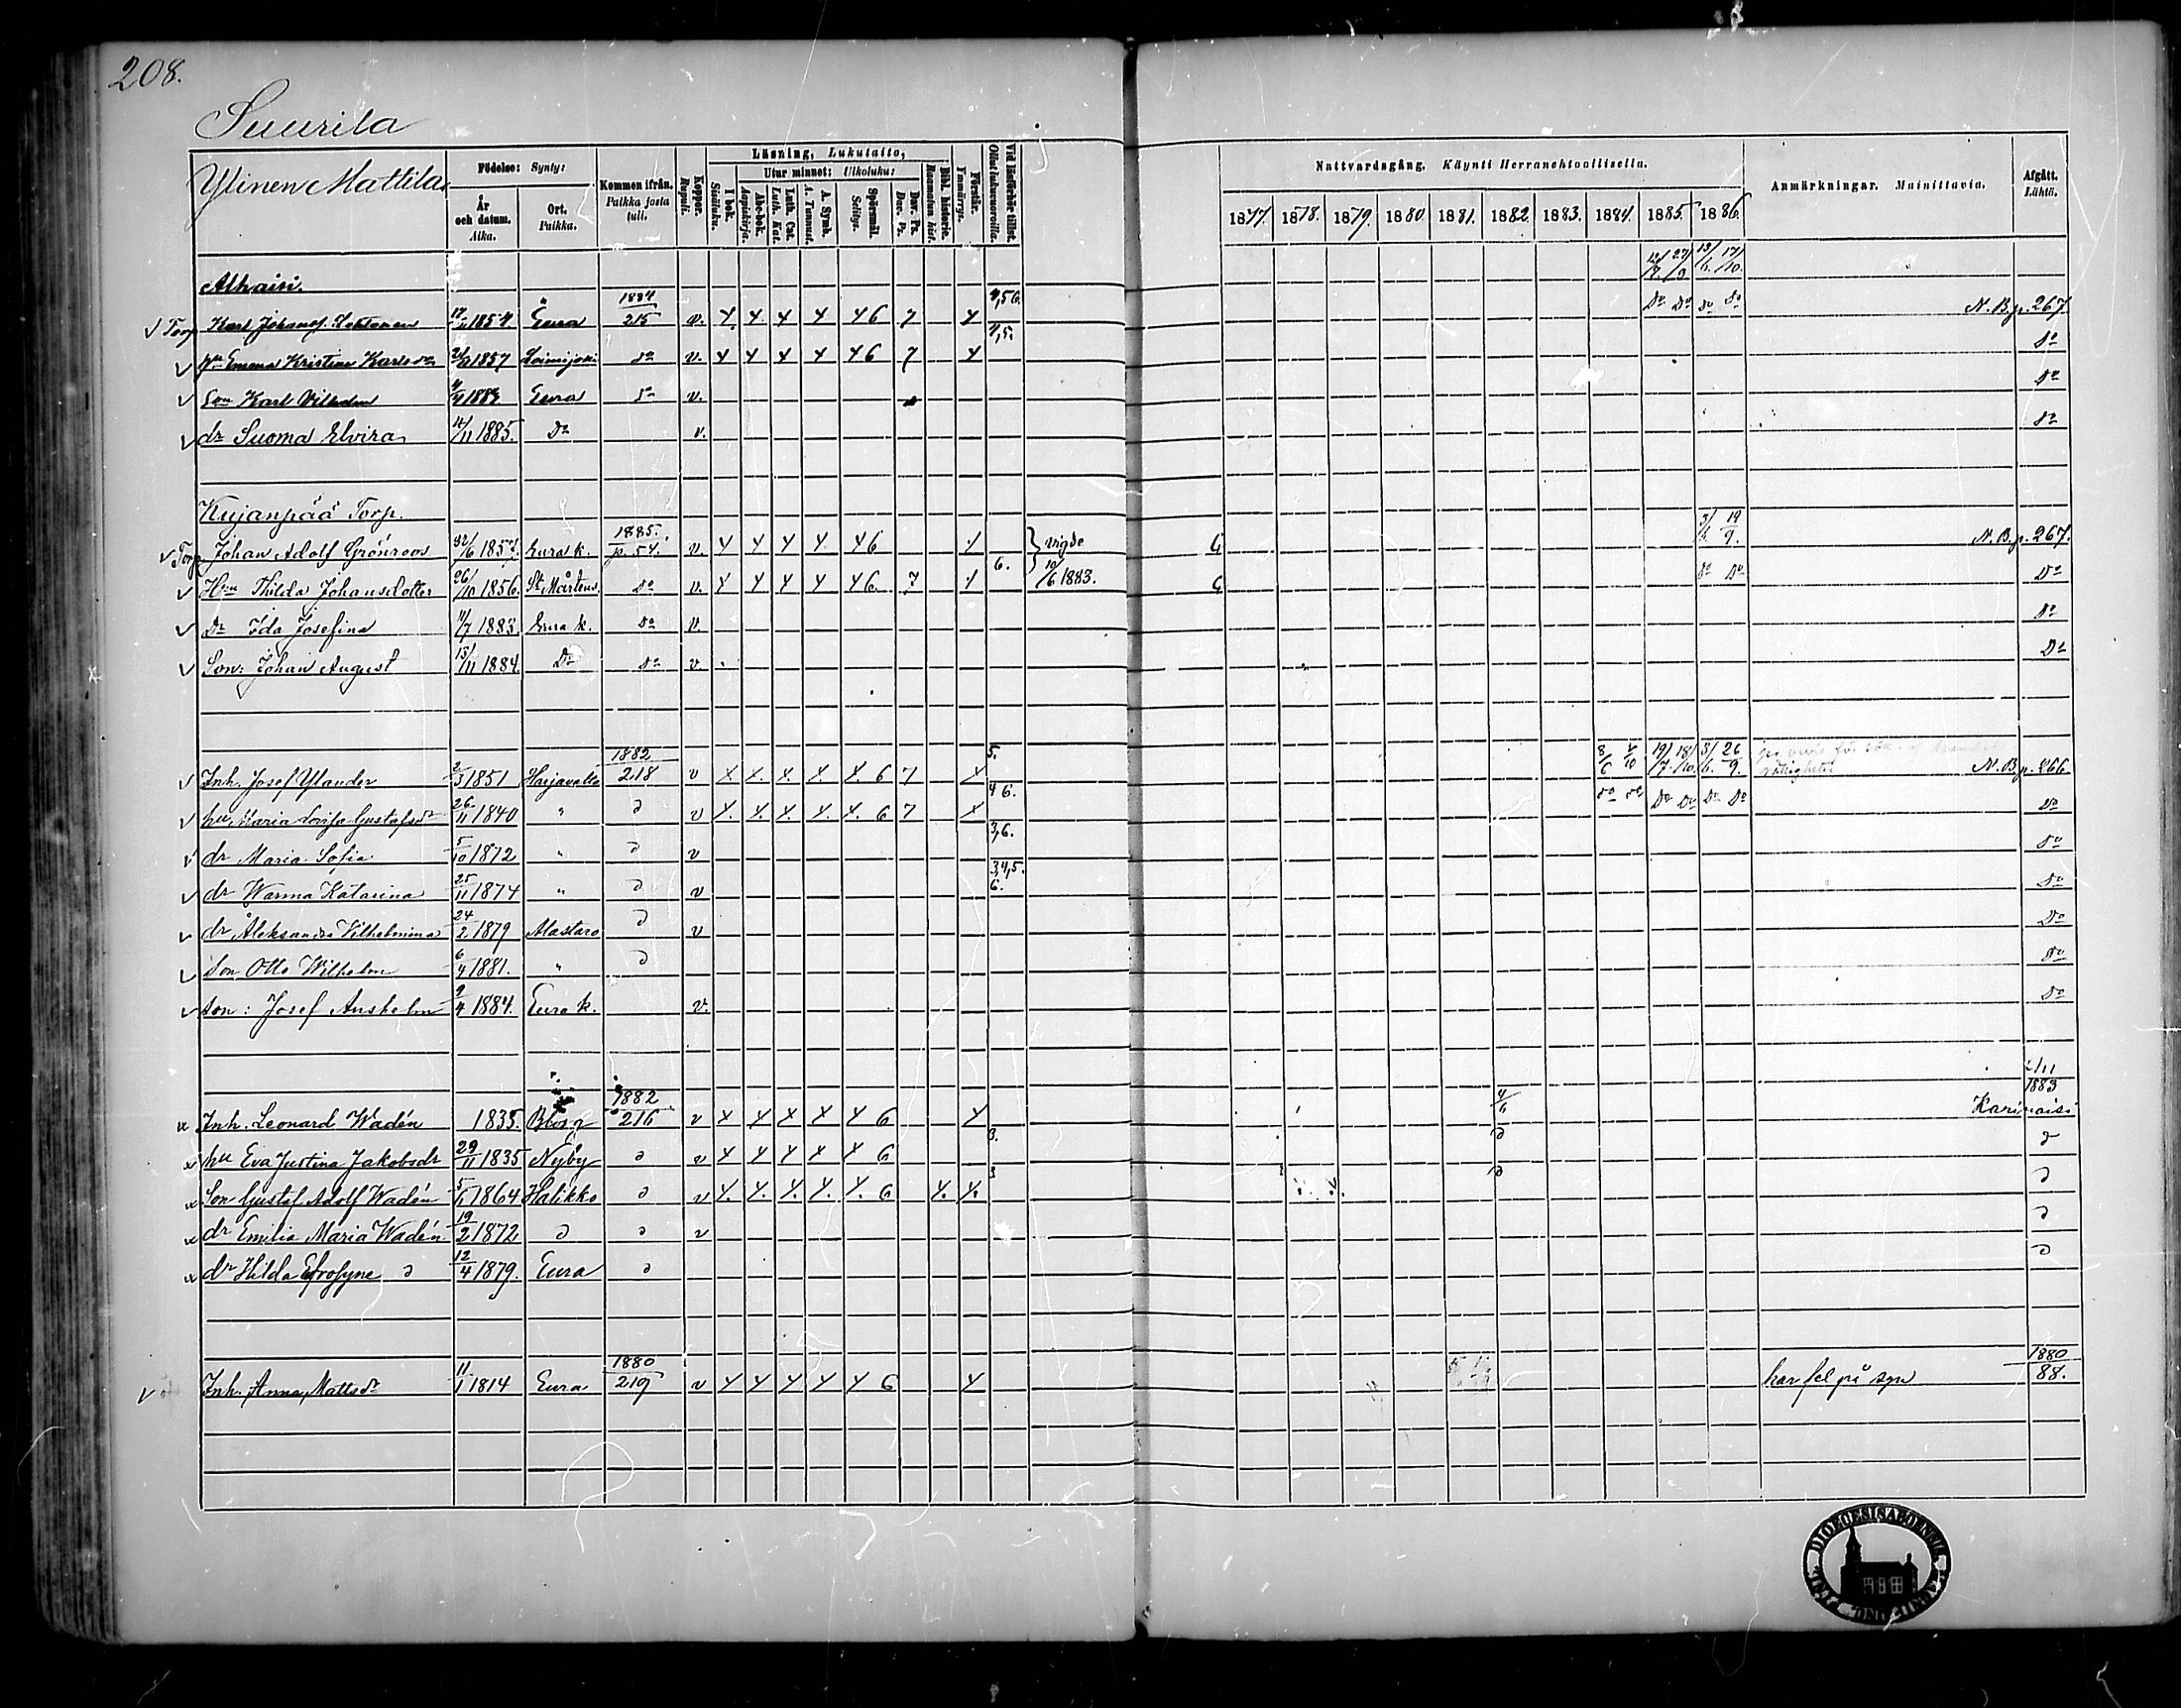 208.
Suurila
Ylinen Mattila
Födelse: Synty:
År och datum. Aika.
Ort. Paikka.
Kommen ifrån. Paikka josta tuli.
Koppor. Rupuli.
Läsning, Lukutaito,
I bok. Sisäluku.
Utur minnet: Ulkoluku:
Abc-bok. Aapiskirja.
Luth. Cat. Luth. Kat.
A. Symb. A. Tunnust.
Spörsmål. Selitys.
Dav. Ps. Dav. Ps.
Bibl. historie. Raamatun hist.
Förstår. Ymmärrys.
Vid läsförhör tillst. Ollut lukuvuoroilla.
Nattvardsgång. Käynti Herranehtoollisella.
1877. 1878. 1879. 1880 1881. 1882. 1883. 1884. 1885. 1886.
Anmärkningar. Muinittavia.
Afgått. Lähtö.
Alhaisi.
Torp Karl Johansf. Lehtonen 1854 Eura 1884 215 v. 4 4 4 4 4 6 7 4 N. B. p. 267
Hu Emma Kristina Karlsdr 1857 Loimijoki do v. 4 4 4 4 4 6 7 4 do
Son Karl Vilhelm 1883 Eura do v. do
dr Suoma Elvira 14/11 1885. Do v. do
Kujanpää Torp.
Torp Johan Adolf Grönroos Eura k. 1885. p. 54. v. 4 4 4 4 4 6 4 vigde 10/6 1883. G 3/6 19/9. N. B. p. 267.
Hu Hilda Johansdotter 26/10 1856. St Mårtens do v. 4 4 4 4 4 6. 7 4 6. G do do Do
Dr Ida Josefina 11/7 1883. Eura k. do v. Do
Son: Johan August 13/11 1884. Do do v. Do
Inh. Josef Ylander 2/3 1851 Harjavalta 1882 218 v 4 4. 4. 4. 4. 6 7 4 5. 8/6 19/7. 18/10. 3/6. 26/9. N. B. p. 266
hu Maria Lovisa Gustafsdr 26/11 1840 " d v 4. 4. 4. 4. 4. 6 7 4 4 6. do do Do Do Do Do Do
dr Maria Sofia 5/10 1872 " d v 3,6. do
dr Wanna Katarina 25/11 1874 " d v 3,4,5. 6. do
dr Aleksandra Vilhelmina 24/2 1879 Alastaro d v Do
Son Otto Wilhelm 6/4 1881. " d do
Son: Josef Anshelm 9/4 1884. Eura k. v. do
Inh. Leonard Wadén 1835. 1882 216 v 4 4 4 4 4 6 4 4/6 1883 Karinaisi
hu Eva Justina Jakobsdr 29/11 1835 Nyby d v 4 4 4 4 4 6 3. d d
Son Gustaf Adolf Wadén 1864 Halikko d v 4. 4. 4. 4. 4. 6 4. 4. 3 d d
dr Emilia Maria Wadén 19/2 1872 d d v d
dr Hilda Efrosyne d 12/4 1879. Eura d d
Inh. Anna Mattsdr 11/1 1814 Eura 1880 219 v 4 4 4 4 4 6 4 har fel på syn 1880 88.
DIOECESIS ABOENSIS